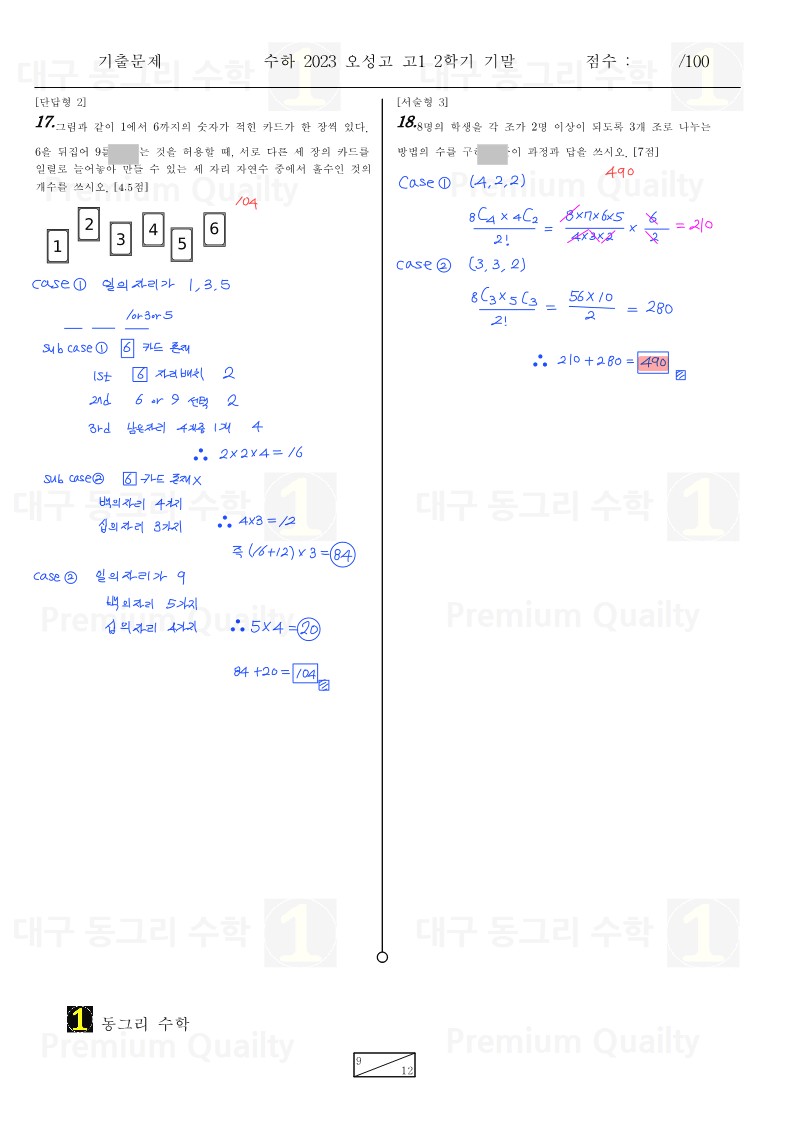 기출문제 수하 2023 오성고 고1 2학기 기말 점수 : /100
[단답형 2]
17.그림과 같이 1에서 6까지의 숫자가 적힌 카드가 한 장씩 있다.
6을 뒤집어 9를 는 것을 허용할 때, 서로 다른 세 장의 카드를
일렬로 늘어놓아 만들 수 있는 세 자리 자연수 중에서 홀수인 것의
개수를 쓰시오. [4.5점]
104
1 2 3 4 5 6
case ① 일의자리가 1, 3, 5
1or3or5
sub case① 6 카드 존재
1st 6 자리배치 2
2nd 6 or 9 선택 2
3rd 남은자리 4개중 1개 4
∴ 2×2×4=16
sub case② 6 카드 존재 x
백의자리 4가지
십의자리 3가지 ∴ 4×3=12
즉 (16+12)×3=84
case ② 일의자리가 9
백의자리 5가지
십의자리 4가지 ∴ 5×4=20
84+20=104
[서술형 3]
18.8명의 학생을 각 조가 2명 이상이 되도록 3개 조로 나누는
방법의 수를 구하 이 과정과 답을 쓰시오. [7점]
490
Case ① (4,2,2)
8C4 × 4C2 / 2! = 8×7×6×5 / 4×3×2 × 6 / 2 = 210
case ② (3,3,2)
8C3 × 5C3 / 2! = 56×10 / 2 = 280
∴ 210+280=490
대구 동그리 수학 1
Premium Quailty
대구 동그리 수학 1
Premium Quailty
대구 동그리 수학 1
Premium Quailty
대구 동그리 수학 1
Premium Quailty
대구 동그리 수학 1
Premium Quailty
대구 동그리 수학 1
Premium Quailty
1 동그리 수학
9 / 12